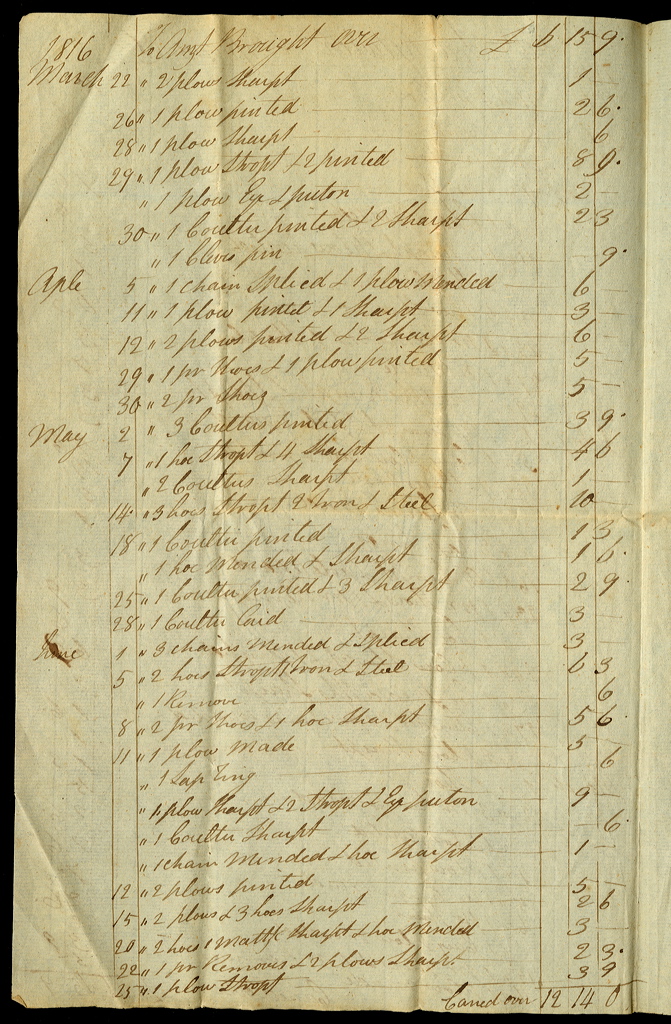 1816 To Amt Brought over £ 6 15 9
March 22 " 2 plows Sharpt 1 —
26 " 1 plow pinted 2 6
28 " 1 plow Sharpt 6
29 " 1 plow Stropt & 2 pinted 8 9
" 1 plow Eye & puton 2 —
30 " 1 Coulter pinted & 2 Sharpt 2 3
" 1 Clevis pin 9
Aple 5 " 1 chain Spliced & 1 plow Mended 6 —
11 " 1 plow pinted & 1 Sharpt 3 —
12 " 2 plows pinted & 2 Sharpt 6 —
29 " 1 pr Shoes & 1 plow pinted 5 —
30 " 2 pr Shoes 5 —
May 2 " 3 Coulters pinted 3 9
7 " 1 hoe Stropt & 4 Sharpt 4 6
" 2 Coulters Sharpt 1 —
14 " 3 hoes Stropt 2 Iron & Steel 10 —
18 " 1 Coulter pinted 1 3
" 1 hoe Mended & Sharpt 1 6
25 " 1 Coulter pinted & 3 Sharpt 2 9
28 " 1 Coulter Laid 3 —
June 1 " 3 chains Mended & Spliced 3 —
5 " 2 hoes Stropt 1 Iron & Steel 6 3
" 1 Remove 6
8 " 2 pr Shoes & 1 hoe Sharpt 5 6
11 " 1 plow Made 5 —
" 1 Lap Ring 6
" 1 plow Sharpt & 2 Stropt & Eye puton 9 —
" 1 Coulter Sharpt — 6
" 1 chain Mended & hoe Sharpt 1 —
12 " 2 plows pinted 5 —
15 " 2 plows & 3 hoes Sharpt 2 6
20 " 2 hoes 1 Mattk Sharpt & hoe Mended 3 —
22 " 1 pr Removes & 2 plows Sharpt 2 3
25 " 1 plow Stropt 3 9
Caried over 12 14 0